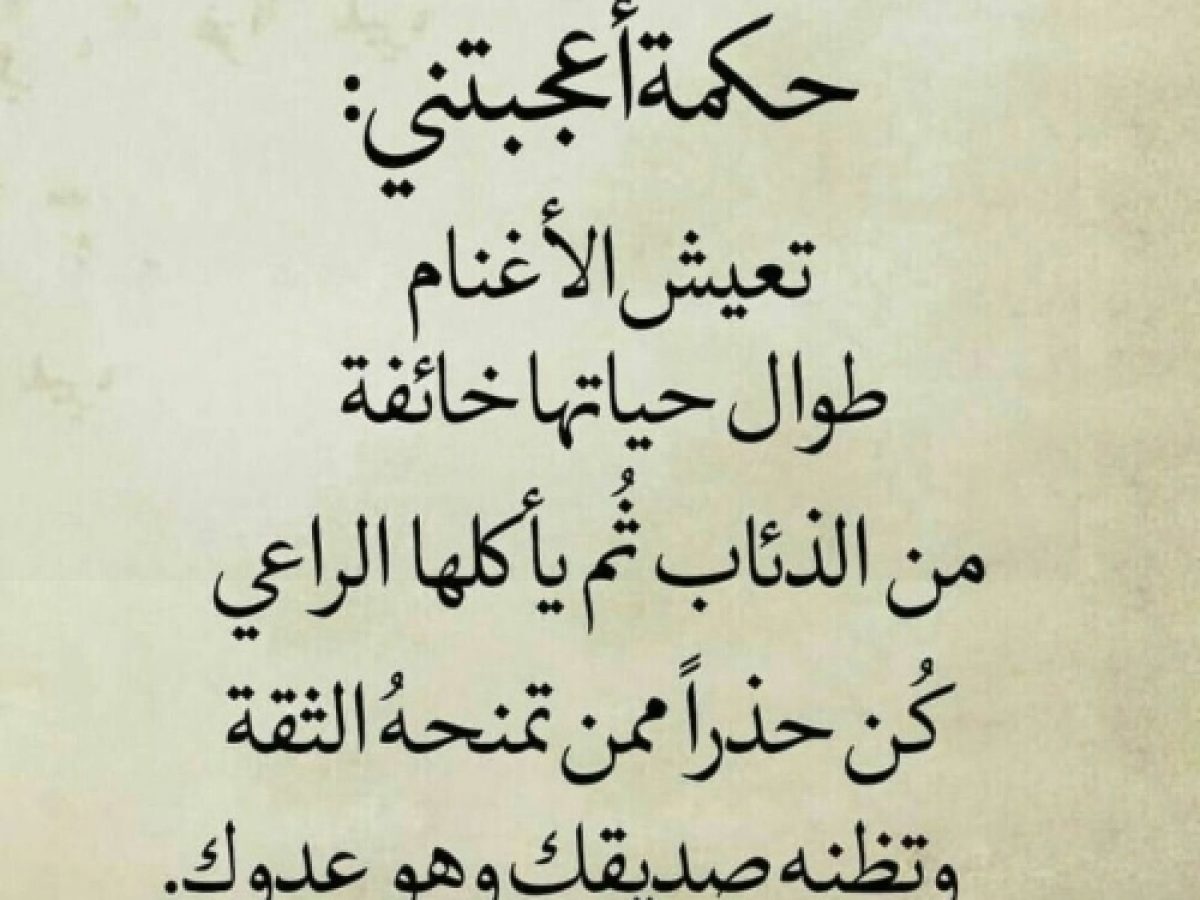 حكمة أعجبتني:
تعيش الأغنام
طوال حياتها خائفة
من الذئاب ثُم يأكلها الراعي
كُن حذراً ممن تمنحهُ الثقة
وتظنه صديقك وهو عدوك.